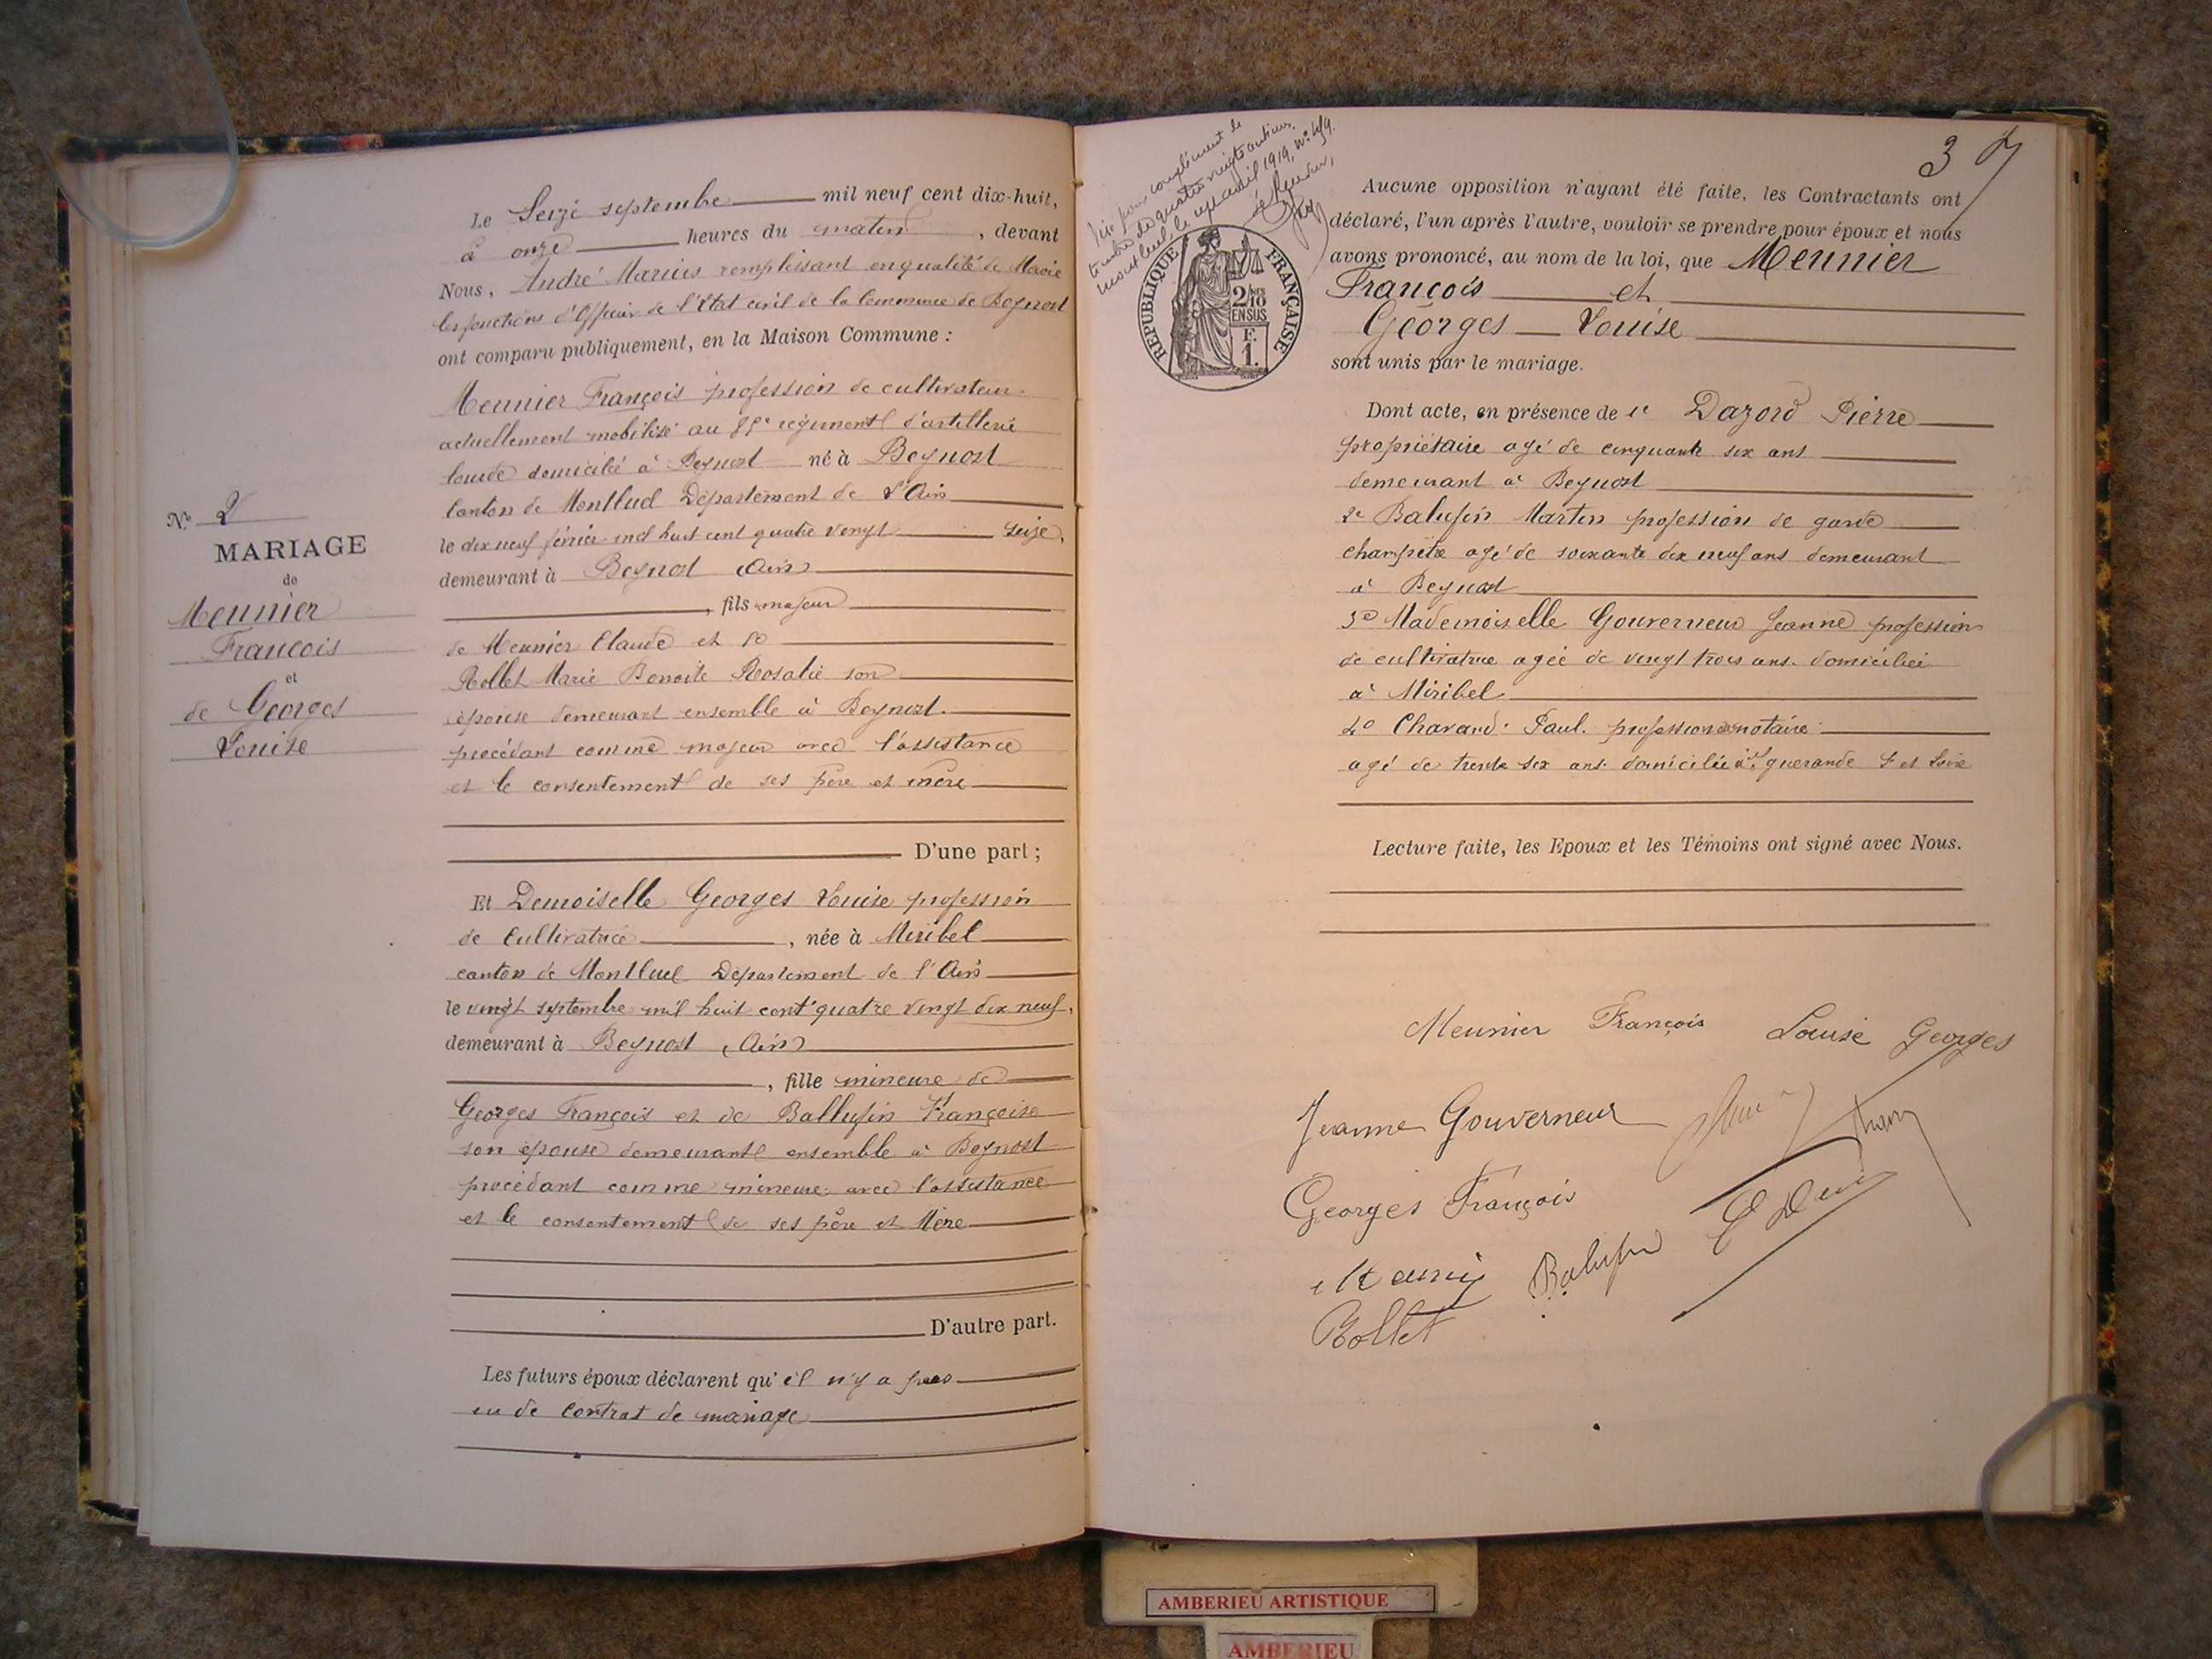 Le Seize septembre mil neuf cent dix-huit,
à onze heures du matin, devant
Nous, André Marius remplissant en qualité de Maire
les fonctions d'Officier de l'Etat civil de la Commune de Beynost
ont comparu publiquement, en la Maison Commune :
Meunier François profession de cultivateur
actuellement mobilisé au régiment d'artillerie
lourde domicilié à Beynost né à Beynost
Canton de Montluel Département de l'Ain
le dix neuf février mil huit cent quatre vingt seize,
demeurant à Beynost (Ain)
, fils majeur
de Meunier Claude et de
Rollet Marie Benoite Rosalie son
épouse demeurant ensemble à Beynost.
procédant comme majeur avec l'assistance
et le consentement de ses père et mère
D'une part ;
Et Demoiselle Georges Louise profession
de Cultivatrice, née à Miribel
canton de Montluel Département de l'Ain
le vingt septembre mil huit cent quatre vingt dix neuf,
demeurant à Beynost (Ain)
, fille mineure de
Georges François et de Ballufin Françoise
son épouse demeurant ensemble à Beynost
procédant comme mineure avec l'assistance
et le consentement de ses père et Mère
D'autre part.
Les futurs époux déclarent qu'il n'y a pas
eu de contrat de mariage
No 2
MARIAGE
de
Meunier
François
et
de Georges
Louise
37
avril 1919, No
RÉPUBLIQUE FRANÇAISE
2/10
EN SUS
F.
1.
Aucune opposition n'ayant été faite, les Contractants ont
déclaré, l'un après l'autre, vouloir se prendre pour époux et nous
avons prononcé, au nom de la loi, que Meunier
François et
Georges Louise
sont unis par le mariage.
Dont acte, en présence de 1° Dazord Pierre
propriétaire agé de cinquante six ans
demeurant à Beynost
2e Balufin Martin profession de garde
champêtre agé de soixante dix neuf ans demeurant
à Beynost
3° Mademoiselle Gouverneur Jeanne profession
de cultivatrice agée de vingt trois ans. domiciliée
à Miribel
4° Chavand Paul. profession de notaire
agé de trente six ans. domicilié à guerande
Lecture faite, les Epoux et les Témoins ont signé avec Nous.
Meunier François Louise Georges
Jeanne Gouverneur
Georges François
Balufin
Rollet
AMBERIEU ARTISTIQUE
AMBERIEU